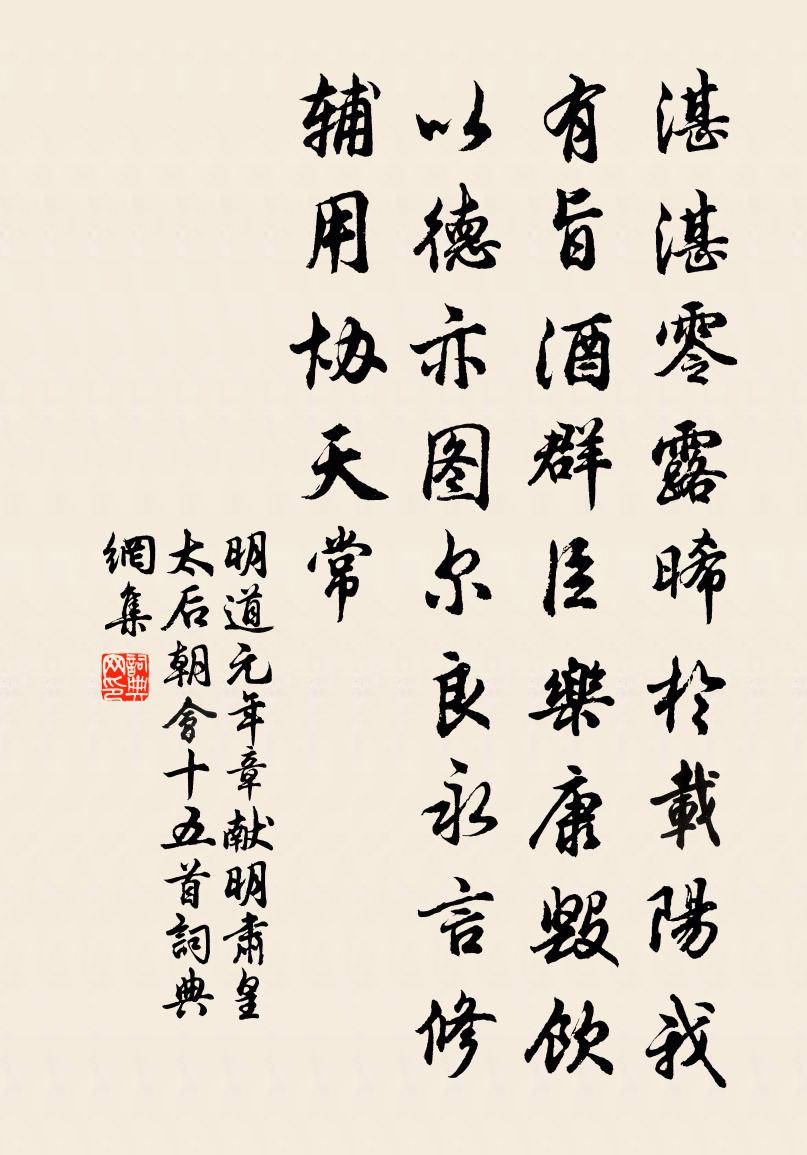 湛湛零露晞於載陽我
有旨酒群臣樂康毀飲
以德亦图尔良永言修
辅用协天常
明道元年章献明肅皇
太后朝會十五首詞典
網集
詞典网印